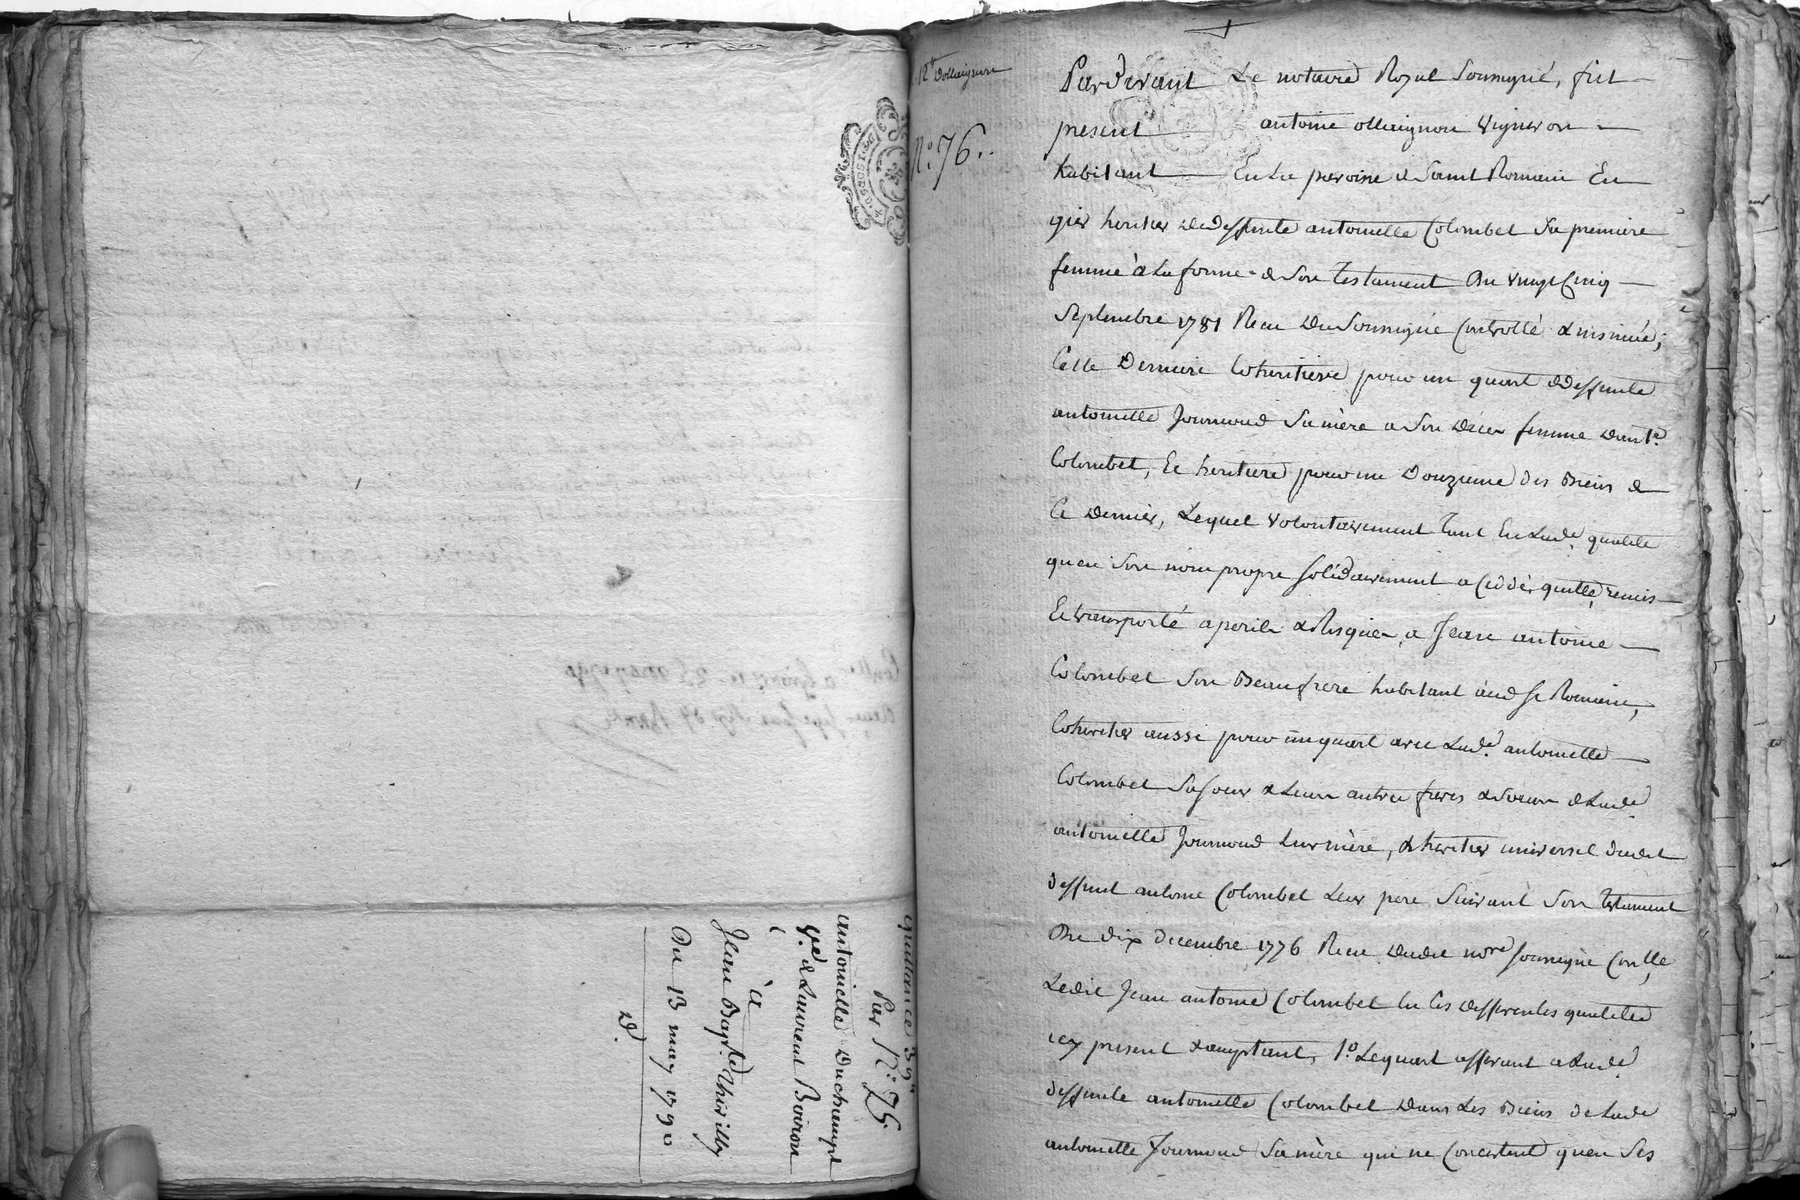 quittance 39ᵗᵗ
Par N.° 75
antoinette Duchampt
vᵉ de Laurent Boiron
à
Jean Bapt.ᵗᵉ Thivilly
Du 13 may 1790
N.° 76.
Pardevant Le notaire Royal Soussigné, fut
present antoine ollaignon vigneron
habitant En La paroisse de Saint Romain En
gier heritier de deffunte antoinette Colombet Sa premiere
femme à La forme de Son testament Du vingt Cinq
Septembre 1781 Recu Du Soussigné Controllé & insinué,
Cette Derniere Coheritiere pour un quart de deffunte
antoinette Journoud Sa mère a Son décès femme d'ant.ᵉ
Colombet, Et heritiere pour un Douzieme des Biens de
Ce Dernier, Lequel volontairement tant En Lad.ᵉ qualité
qu'en Son nom propre Solidairement a Cèddé, quitté, remis
Et transporté a perils & Risques, a Jean antoine
Colombet Son Beaufrere habitant aud. St Romain,
Coheritier aussi pour un quart avec Lad.ᵉ antoinette
Colombet Sa Soeur & Leurs autres freres & Soeurs de Lade
antoinette Journoud Leur mère, & heritier universel dudit
deffunt antoine Colombet Leur pere Suivant Son testament
Du dix decembre 1776 Recu dudit nore Soussigné Conllé,
Ledit Jean antoine Colombet En Ces differentes qualités
icy present & acceptant, 1.° Le quart afferant a Lade
deffunte antoinette Colombet Dans Les Biens de Lade
antoinette Journoud Sa mère qui ne Concistent qu'en Ses